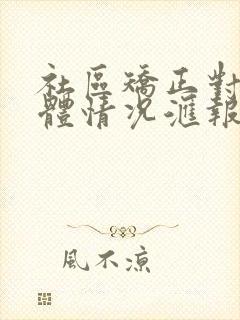 社區矯正對
體情況滙報
風不涼